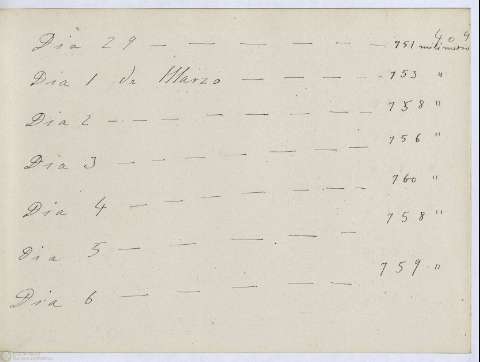 409
Dia 29 — — — — — 751 milimetros
Dia 1 de Marzo — — — — - 753 "
Dia 2 - — — — — — 758 "
Dia 3 — — — — — — 756 "
Dia 4 — — — — — — 760 "
Dia 5 — — — — — 758 "
Dia 6 — — — — — 759 "